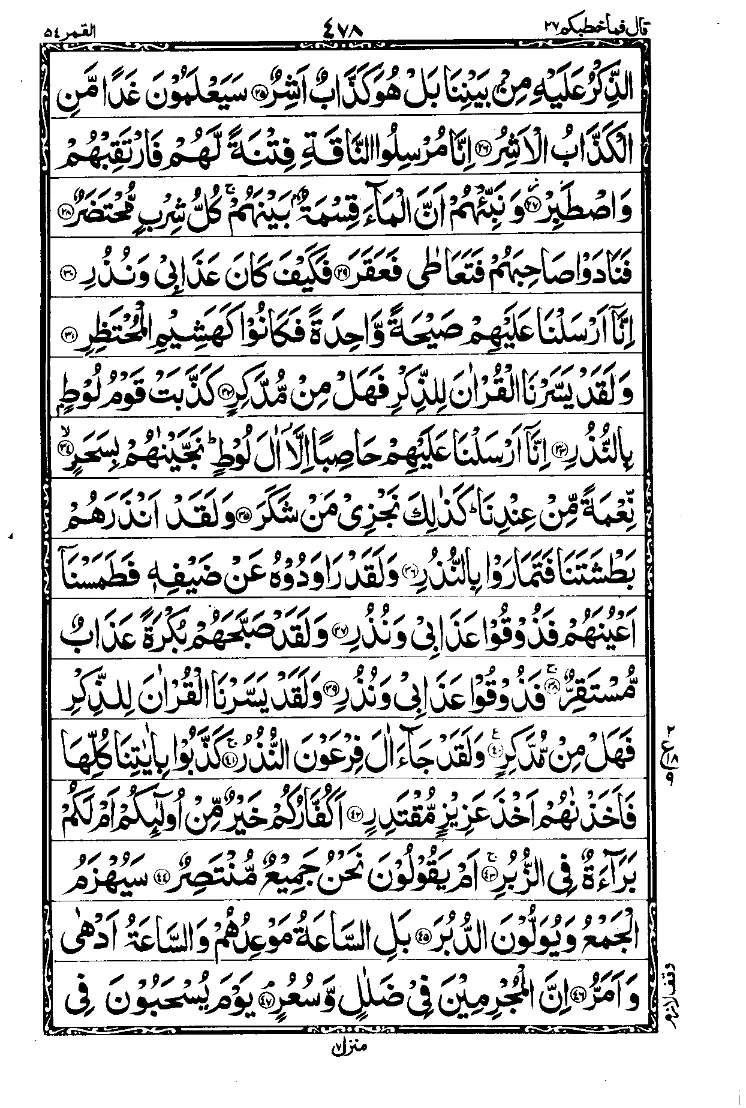 قال فما خطبكم ٢٧ ٤٧٨ القمر ٥٤
الذِّكْرُ عَلَيْهِ مِنْۢ بَيْنِنَا بَلْ هُوَ كَذَّابٌ اَشِرٌ ﴿٢٥﴾ سَيَعْلَمُوْنَ غَدًا مَّنِ
الْكَذَّابُ الْاَشِرُ ﴿٢٦﴾ اِنَّا مُرْسِلُوا النَّاقَةِ فِتْنَةً لَّهُمْ فَارْتَقِبْهُمْ
وَاصْطَبِرْ ﴿٢٧﴾ وَنَبِّئْهُمْ اَنَّ الْمَآءَ قِسْمَةٌۢ بَيْنَهُمْ ۚ كُلُّ شِرْبٍ مُّحْتَضَرٌ ﴿٢٨﴾
فَنَادَوْا صَاحِبَهُمْ فَتَعَاطٰى فَعَقَرَ ﴿٢٩﴾ فَكَيْفَ كَانَ عَذَابِيْ وَنُذُرِ ﴿٣٠﴾
اِنَّاۤ اَرْسَلْنَا عَلَيْهِمْ صَيْحَةً وَّاحِدَةً فَكَانُوْا كَهَشِيْمِ الْمُحْتَظِرِ ﴿٣١﴾
وَلَقَدْ يَسَّرْنَا الْقُرْاٰنَ لِلذِّكْرِ فَهَلْ مِنْ مُّدَّكِرٍ ﴿٣٢﴾ كَذَّبَتْ قَوْمُ لُوْطٍۭ
بِالنُّذُرِ ﴿٣٣﴾ اِنَّاۤ اَرْسَلْنَا عَلَيْهِمْ حَاصِبًا اِلَّاۤ اٰلَ لُوْطٍ ؕ نَجَّيْنٰهُمْ بِسَحَرٍ ﴿٣٤﴾ۙ
نِّعْمَةً مِّنْ عِنْدِنَا ؕ كَذٰلِكَ نَجْزِيْ مَنْ شَكَرَ ﴿٣٥﴾ وَلَقَدْ اَنْذَرَهُمْ
بَطْشَتَنَا فَتَمَارَوْا بِالنُّذُرِ ﴿٣٦﴾ وَلَقَدْ رَاوَدُوْهُ عَنْ ضَيْفِهٖ فَطَمَسْنَاۤ
اَعْيُنَهُمْ فَذُوْقُوْا عَذَابِيْ وَنُذُرِ ﴿٣٧﴾ وَلَقَدْ صَبَّحَهُمْ بُكْرَةً عَذَابٌ
مُّسْتَقِرٌّ ﴿٣٨﴾ۚ فَذُوْقُوْا عَذَابِيْ وَنُذُرِ ﴿٣٩﴾ وَلَقَدْ يَسَّرْنَا الْقُرْاٰنَ لِلذِّكْرِ
فَهَلْ مِنْ مُّدَّكِرٍ ﴿٤٠﴾ع وَلَقَدْ جَآءَ اٰلَ فِرْعَوْنَ النُّذُرُ ﴿٤١﴾ۚ كَذَّبُوْا بِاٰيٰتِنَا كُلِّهَا
٢ ع ١٨ ٩
فَاَخَذْنٰهُمْ اَخْذَ عَزِيْزٍ مُّقْتَدِرٍ ﴿٤٢﴾ اَكُفَّارُكُمْ خَيْرٌ مِّنْ اُولٰٓئِكُمْ اَمْ لَكُمْ
بَرَآءَةٌ فِي الزُّبُرِ ﴿٤٣﴾ۚ اَمْ يَقُوْلُوْنَ نَحْنُ جَمِيْعٌ مُّنْتَصِرٌ ﴿٤٤﴾ سَيُهْزَمُ
الْجَمْعُ وَيُوَلُّوْنَ الدُّبُرَ ﴿٤٥﴾ بَلِ السَّاعَةُ مَوْعِدُهُمْ وَالسَّاعَةُ اَدْهٰى
وَاَمَرُّ ﴿٤٦﴾ اِنَّ الْمُجْرِمِيْنَ فِيْ ضَلٰلٍ وَّسُعُرٍ ﴿٤٧﴾ۘ يَوْمَ يُسْحَبُوْنَ فِي
وقف لازم
منزل ٧